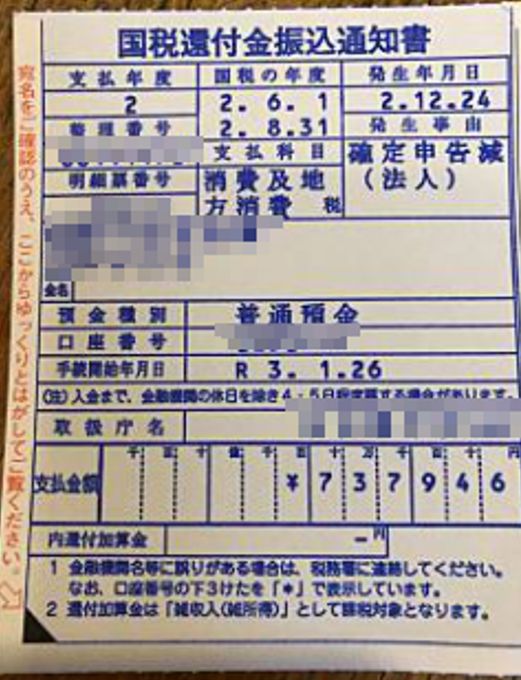 国税還付金振込通知書
支払年度
2
国税の年度
2.6.1
2.8.31
発生年月日
2.12.24
整理番号
発生事由
確定申告減
(法人)
支払科目
消費及地
方消費 税
明細票番号
金名
預金種別 普通預金
口座番号
手続開始年月日 R 3.1.26
(注)入金まで、金融機関の休日を除き4・5日程度要する場合があります。
取扱庁名
千百十億千百十万千百十円
支払金額 ¥737946
内還付加算金 -円
1 金融機関名等に誤りがある場合は、税務署に連絡してください。
なお、口座番号の下3けたを「*」で表示しています。
2 還付加算金は「雑収入(雑所得)」として課税対象となります。
宛名をご確認のうえ、ここからゆっくりとはがしてご覧ください。